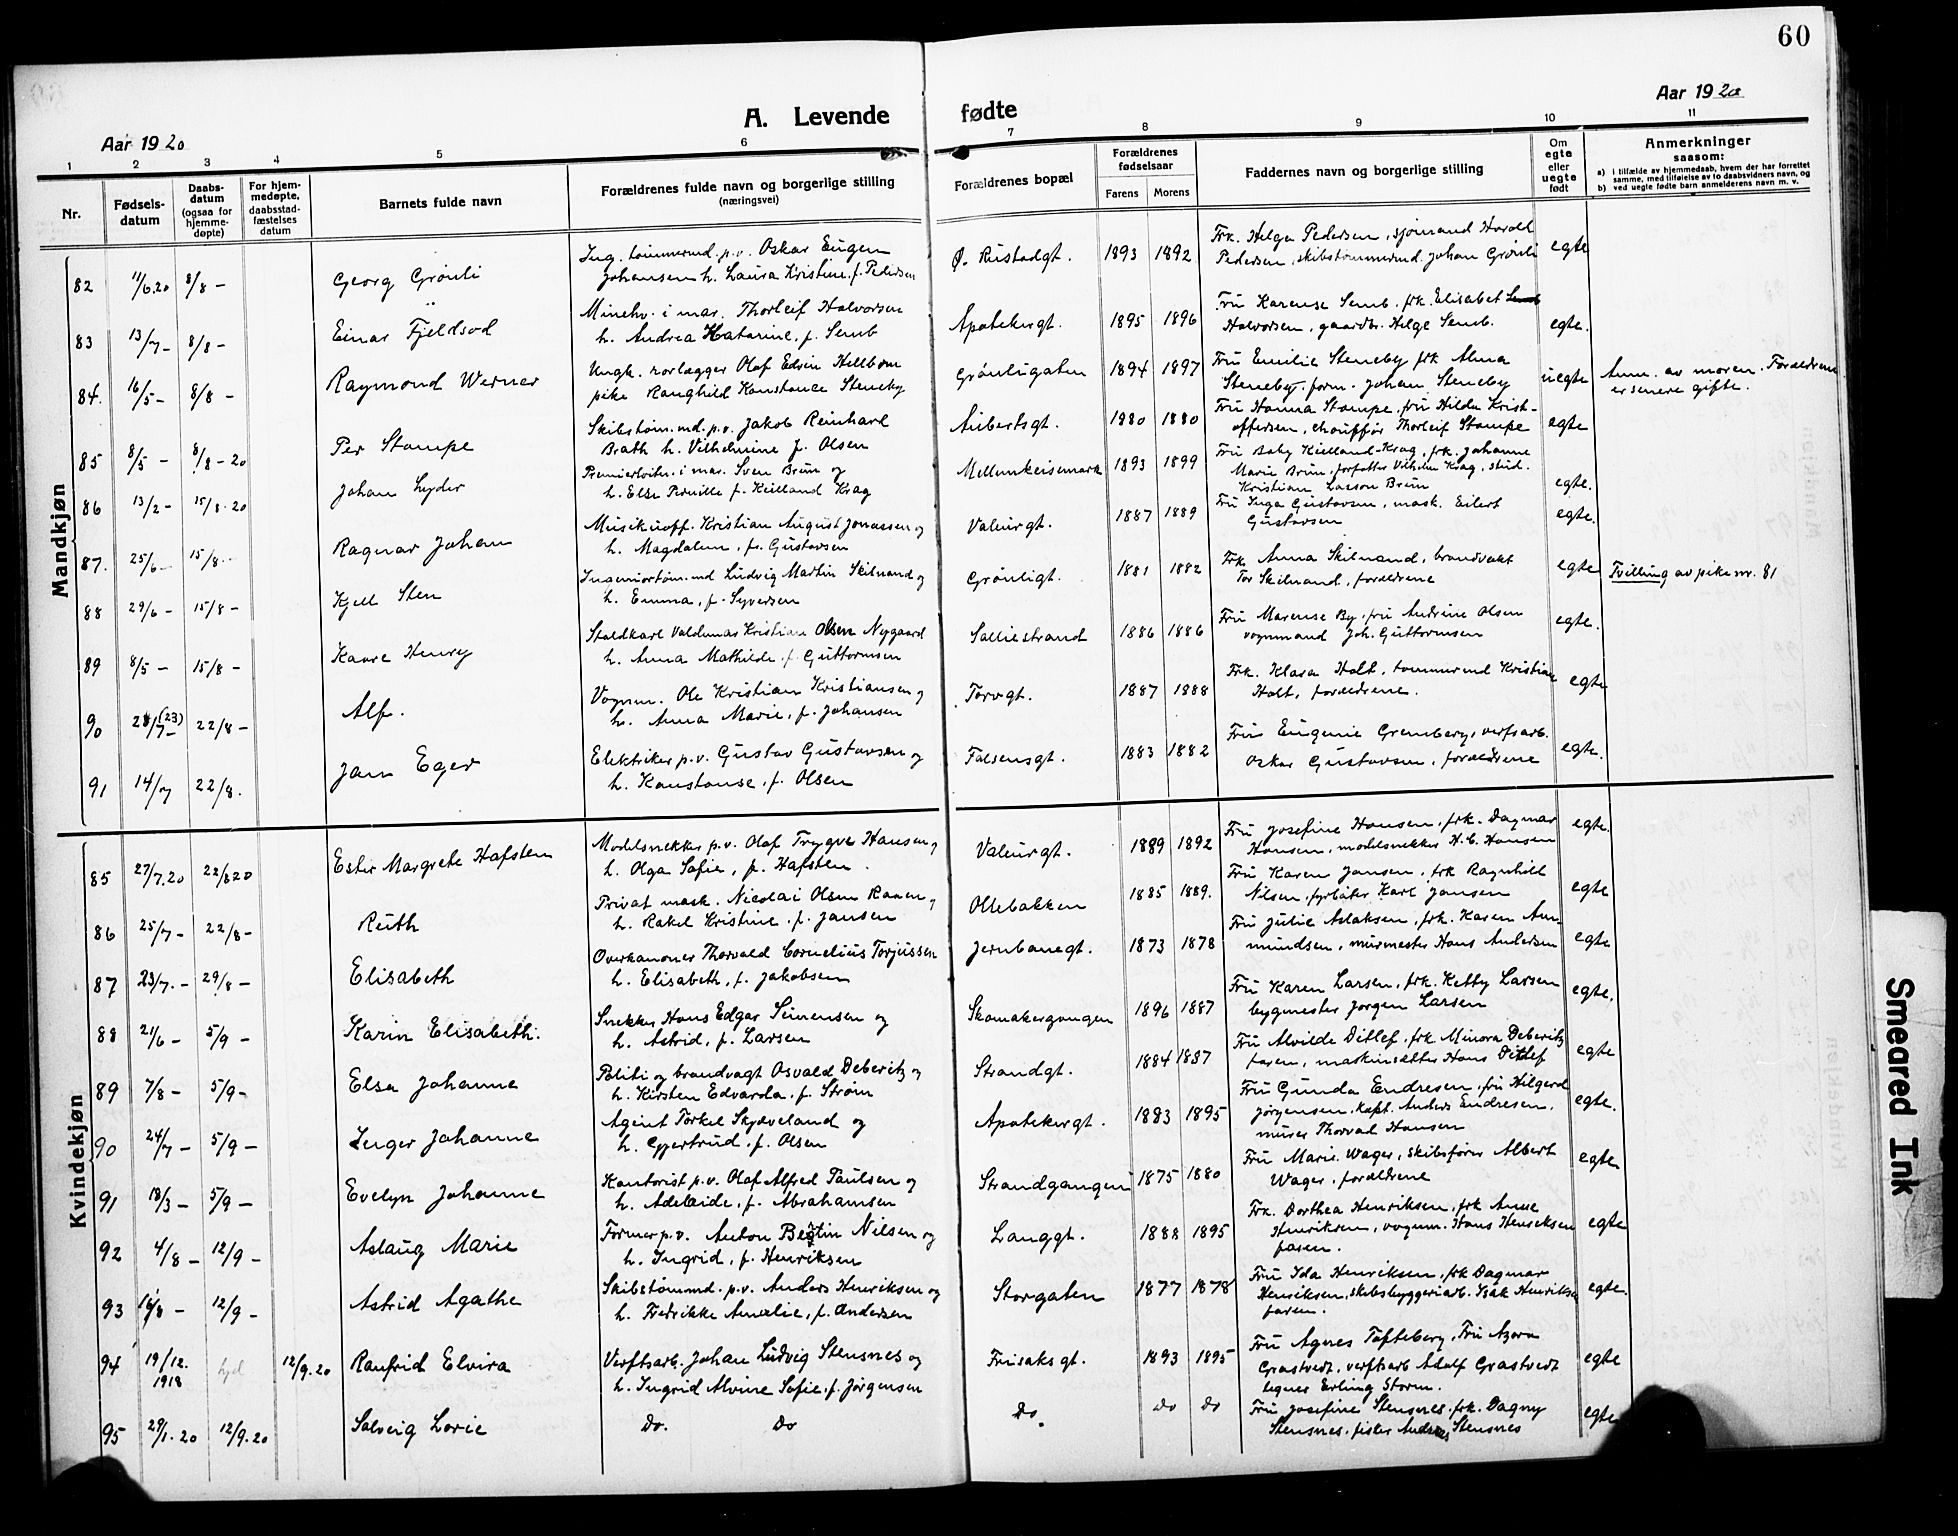 60
A. Levende fødte
Aar 1920
Aar 1920
1 2 3 4 5 6 7 8 9 10 11
Nr.
Fødsels-
datum
Daabs-
datum
(ogsaa for
hjemme-
døpte)
For hjem-
medøpte,
daabsstad-
fæstelses
datum
Barnets fulde navn
Forældrenes fulde navn og borgerlige stilling
(næringsvei)
Forældrenes bopæl
Forældrenes
fødselsaar
Farens Morens
Faddernes navn og borgerlige stilling
Om
egte
eller
uegte
født
Anmerkninger
saasom:
a) i tilfælde av hjemmedaab, hvem der har forrettet
samme, med tilføielse av to daabsvidners navn, og
b) ved uegte fødte barn anmelderens navn m. v.
Mandkjøn
82 11/6.20 8/8 - Georg Grönli
Ing. tömmermd. p.v. Oskar Eugen
Johansen h. Laura Kristine f. Pedersen
Ø. Rustadgt. 1893 1892
Frk. Helga Pedersen, sjömand Harald
Pedersen, skibstømmermd. Johan Grönli
egte
83 13/7 - 8/8 - Einar Fjeldsöd
Minehv. i mar. Thorleif Halvorsen
h. Andrea Katarine, f. Semb
Apotekergt. 1895 1896
Fru Karense Semb. frk. Elisabet
Halvorsen, gaardbr. Helge Semb.
egte.
84. 16/5 - 8/8 - Raymond Werner
Ungk. rorlægger Olaf Edvin Hellbom
pike Ranghild Konstance Steneby
Grönligaten 1894 1897
Fru Emilie Steneby frk Alma
Steneby. form. Johan Steneby
uegte
Anm. av moren. Forældrene
er senere gifte.
85 8/5 - 8/8 - 20 Per Stampe
Skibstöm.md. p.v. Jakob Reinhard
Brath h. Vilhelmine f. Olsen
Aubertsgt. 1880 1880
Fru Hanna Stampe. fru Hilda Krist-
offersen, chauffør Thorleif Stampe
egte
86 13/2 - 15/8.20 Johan Lyder
Premierløitn. i mar. Sven Brun og
h. Else Pernille f. Keilland Krag
Mellumkeisemark 1893 1899
Fru Baby Kielland-Krag, frk. Johanne
Marie Brun, forfatter Vilhelm Krag, stud.
Kristian Lasson Brun
egte.
87. 25/6 - 15/8 - Ragnar Johan
Musikuoff. Kristian August Jonassen og
h. Magdalene, f. Gustavsen
Valeurgt. 1887 1889
Fru Inga Gustavsen, mask. Eilert
Gustavsen
egte.
88 29/6 - 15/8 - Kjell Sten
Ingeniörtöm.md Ludvig Martin Skilnand og
h. Emma, f. Syversen
Grönligt. 1881 1882
Frk. Anna Skilnand, brandvakt
Tor Skilnand, forældrene
egte
Tvilling av pike nr. 81
89 8/5 - 15/8 - Kaare Henry
Staldkarl Valdemar Kristian Olsen Nygaard
h. Anna Mathilde f. Guttormsen
Solliestrand 1886 1886
Fru Marense By, fru Andrine Olsen
vognmand Joh. Guttormsen
egte.
90 (23) 22/8 - Alf.
Vognm. Ole Kristian Kristiansen og
h. Anna Marie, f. Johansen
Torvgt. 1887 1888
Frk. Klara Holt, tømmermd Kristian
Holt, forældrene.
egte
91 14/7 22/8. Jan Eger
Elektriker p.v. Gustav Gustavsen og
h. Konstanse, f. Olsen
Falsensgt. 1883 1882
Fru Eugenie Gremberg, verfsarb.
Oskar Gustavsen, forældrene
egte.
Kvindekjøn
85 27/7.20 22/8 20 Ester Margrete Hafsten
Modelsnekker p.v. Olaf Trygve Hansen og
h. Olga Sofie, f. Hafsten.
Valeurgt. 1889 1892
Fru Josefine Hansen, frk. Dagmar
Hansen, modelsnekker H.C. Hansen
egte.
86 25/7 - 22/8 - Ruth
Privat mask. Nicolai Olsen Ranen og
h. Rakel Kristine. f. Jansen
Ollebakken 1885 1889.
Fru Karen Jansen, frk Ragnhild
Nilsen, fyrbøter Karl Jansen
egte
87 23/7. - 29/8 - Elisabeth
Overkanoner Thorvald Cornelius Torjussen
h. Elisabeth, f. Jakobsen
Jernbanegt. 1873 1878
Fru Julie Aslaksen, frk. Karen Am-
mundsen, murmester Hans Andersen
egte
88 21/6 - 5/9 - Karin Elisabeth.
Snekker Hans Edgar Simensen og
h. Astrid, f. Larsen
Skomakergangen 1896 1887
Fru Karen Larsen, frk. Ketty Larsen
bygmester Jørgen Larsen
egte.
89 7/8 - 5/9 - Elsa Johanne
Politi og brandvagt Osvald Deberitz og
h. Kirsten Edvarda. f. Ström
Strandgt. 1884 1887
Fru Alvilde Ditlef, frk Minora Deberitz
faren, maskinsætter Hans Ditlef
egte
90 24/7 - 5/9 - Inger Johanne
Agent Torkel Skjæveland og
h. Gjertrud. f. Olsen
Apotekergt. 1883 1895
Fru Gunda Endresen, fru Hilgerd
Jörgensen. kapt. Anders Endresen.
murer Thorvad Hansen
egte.
91 18/3 - 5/9 - Evelyn Johanne
Kontorist p.v. Olaf Alfred Paulsen og
h. Adeleide, f. Abrahamsen
Strandgangen 1875 1880
Fru Marie Wager, skibsfører Albert
Wager, forældrene
egte
92 4/8 - 12/9 - Aslaug Marie
Former p.v. Anton Nilsen og
h. Ingrid, f. Henriksen
Langgt. 1888 1895
Frk. Dorthea Henriksen, frk Anne
Henriksen, vognm. Hans Henriksen
faren.
egte
93 12/9 - Astrid Agathe
Skibstømmd. p.v. Anders Henriksen og
h. Fredrikke Amalie, f. Andersen
Storgaten 1877 1878
Fru Ida Henriksen, frk Dagmar
Henriksen, skibsbyggeriarb. Isak Henriksen
faren.
egte.
94 19/12. 1918 hjd 12/9.20 Ranfrid Elvira
Verftsarb. Johan Ludvig Stensnes og
h. Ingrid Alvine Sofie. f. Jörgensen
Frisaksgt. 1893 1895
Fru Agnes Tofteberg, Fru Azora
Grastvedt, verftsarb Adolf Grastvedt
tegner Erling Storm.
egte
95 29/1.20 12/9.20 Solveig Lovie
Do. Do
Do. Do Do
Fru Josefine Stensnes, frk. Dagny
Stensnes, fisker Andreas Stensnes
egte
Smeared Ink